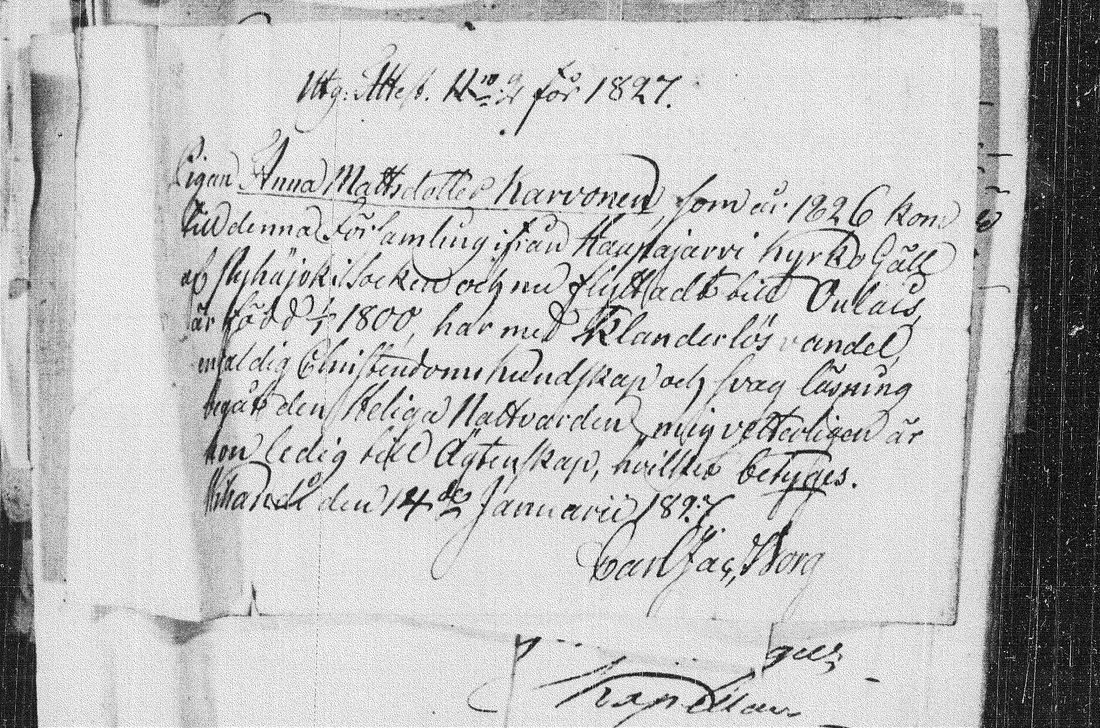 Utg: Attest. Nro 2 för 1827.
Pigan Anna Mattsdotter Karvonen, som år 1826 kom
till denna Församling ifrån Haapajärvi Kyrko Gäll
af Pyhäjoki Socken och nu flyttadt till Oulais,
är född 1/1 1800, har med Klanderlös vandel,
enfaldig Christendoms kundskap och svag läsning
begått den Heliga Nattvarden, mig vetterligen är
hon ledig till Ägtenskap, hvilket betyges.
den 14de Januarii 1827.
Carl Jac. Borg
Kapellan